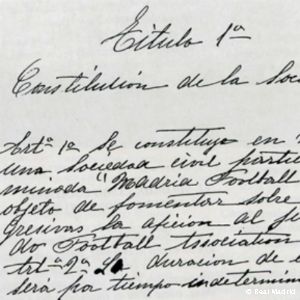 Titulo 1º
Constitución de la Soc
Artº 1º Se constituye en
una Sociedad civil parti
minada "Madrid Football
objeto de fomentar sobre
gresivas la aficion al f
do Football Association
Artº 2º La duracion de
será por tiempo indetermin
© Real Madrid